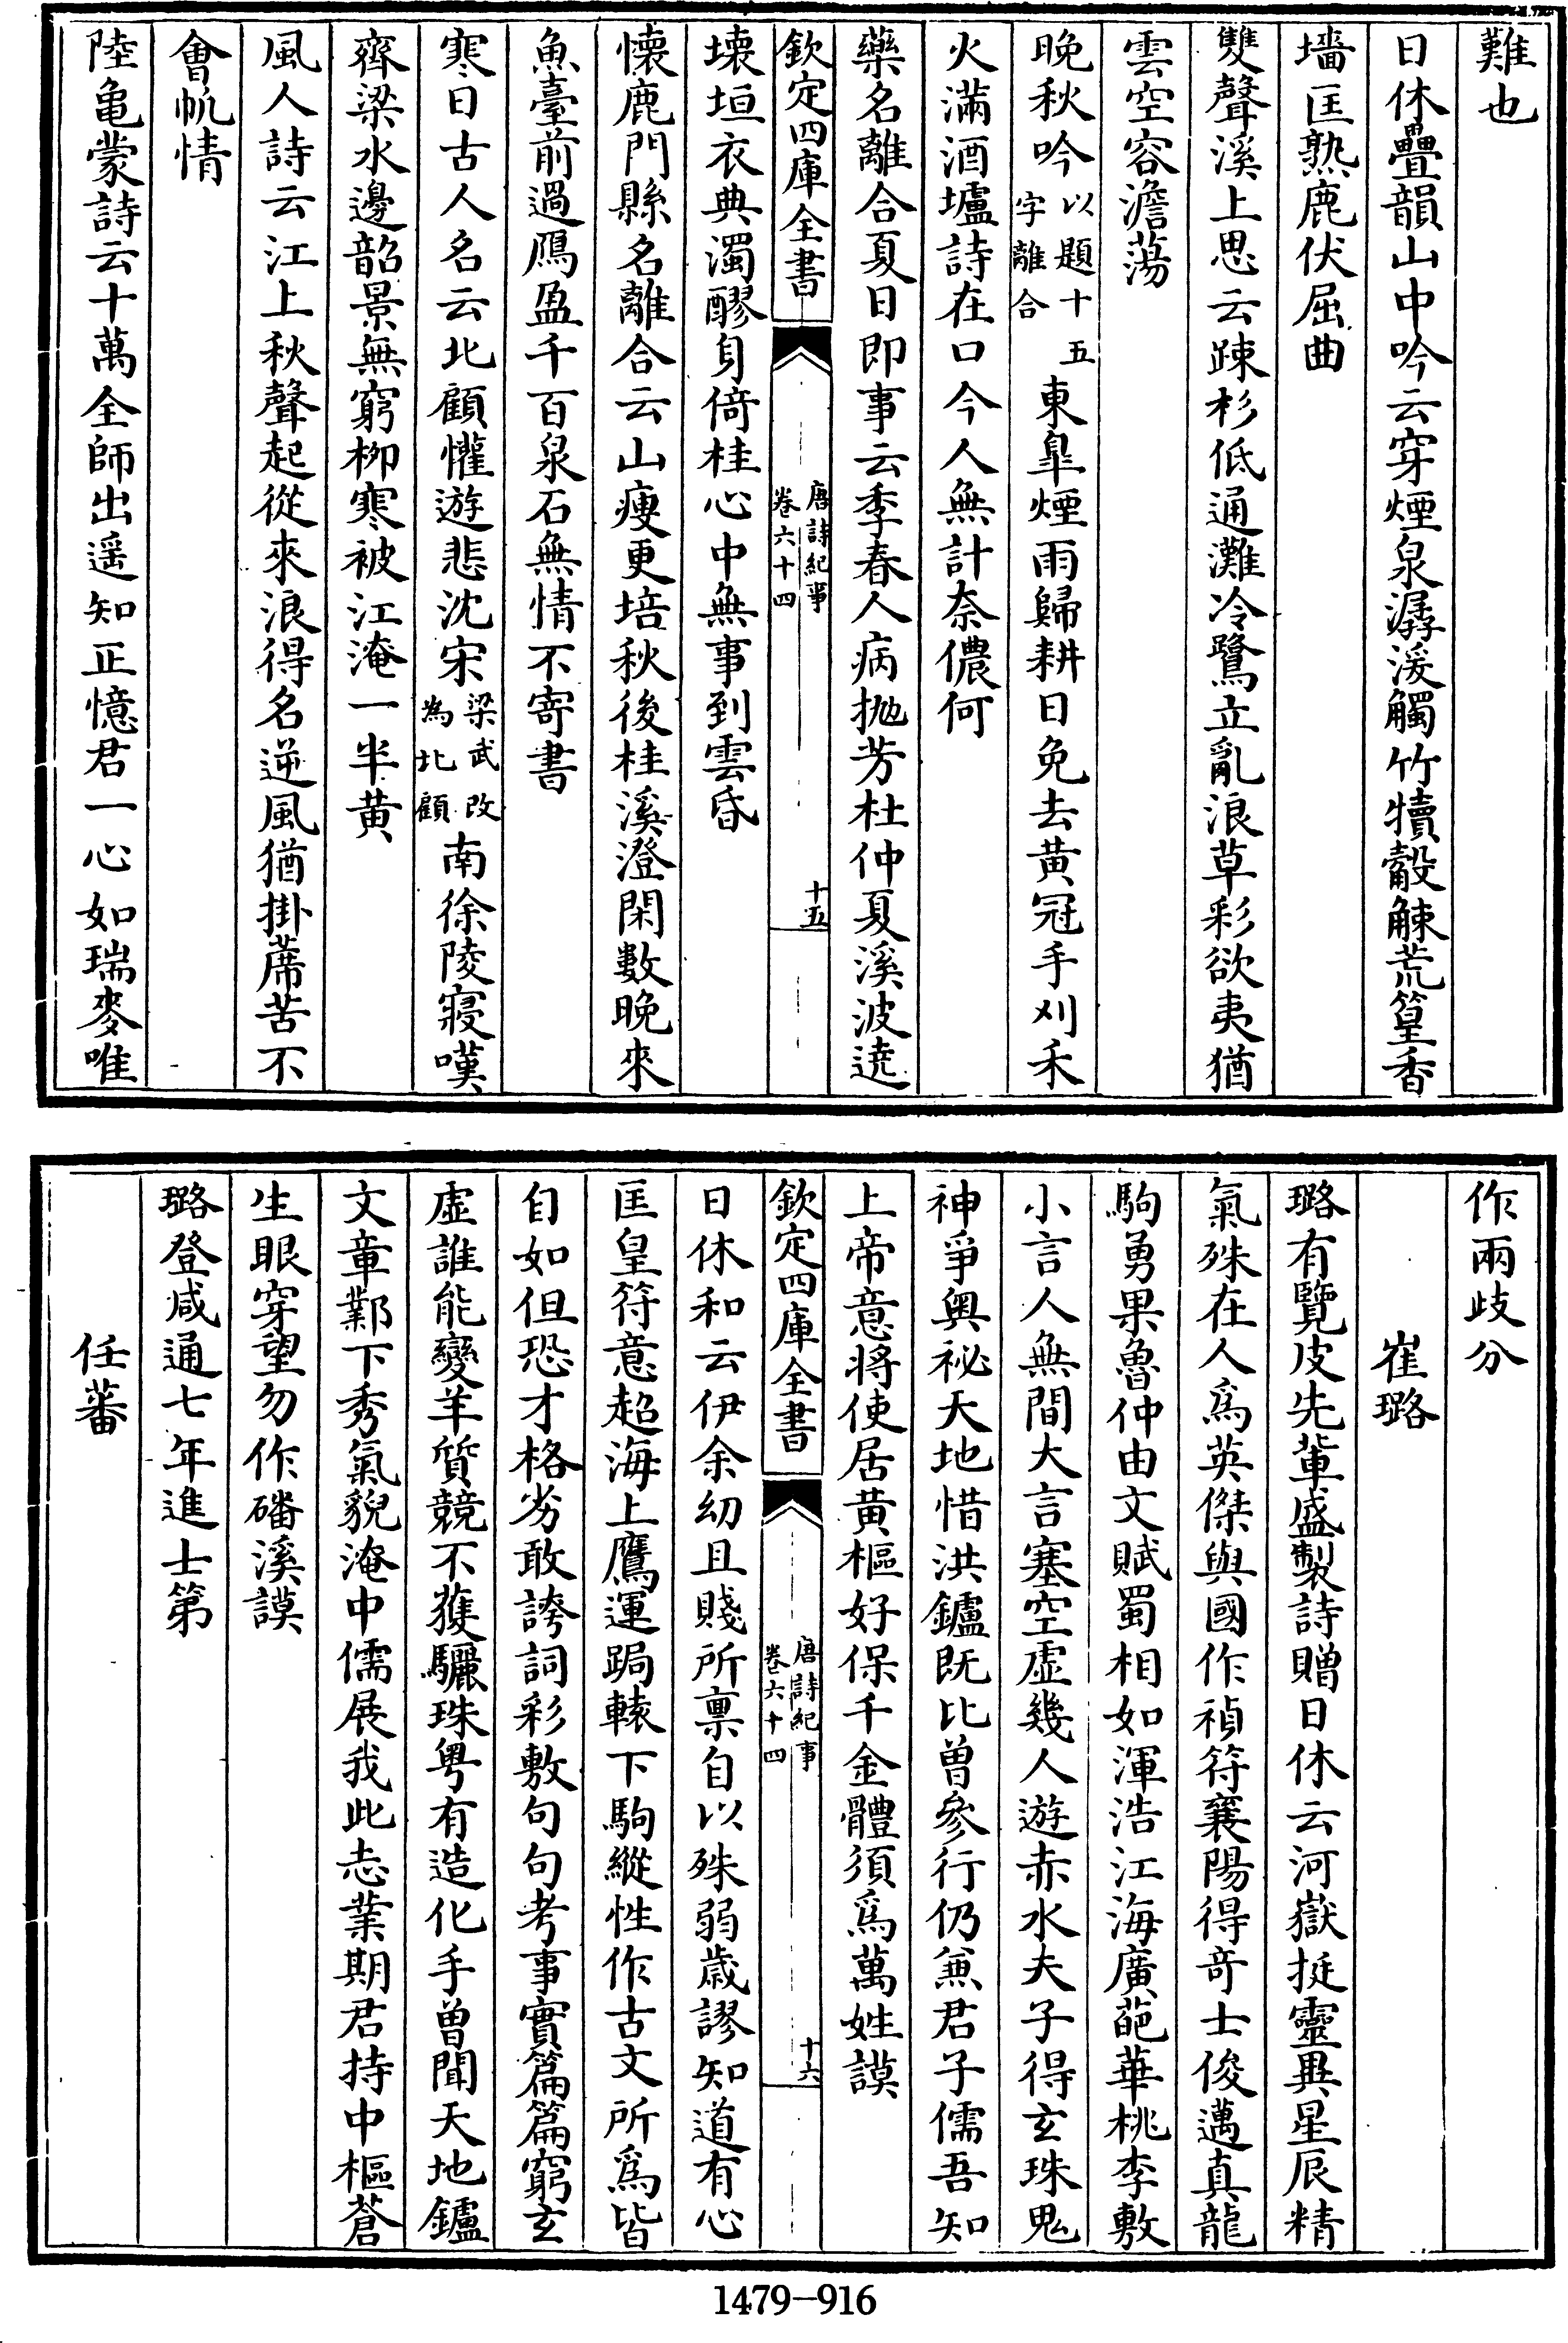 難也
日休疊韻山中吟云穿煙泉潺湲觸竹犢觳觫荒篁香
墻匡熟鹿伏屈曲
雙聲溪上思云踈杉低通灘冷鷺立亂浪草彩欲夷猶
雲空容澹蕩
晚秋吟以題十五字離合東臯煙雨歸耕日免去黃冠手刈禾
火滿酒壚詩在口今人無計奈儂何
藥名離合夏日即事云季春人病抛芳杜仲夏溪波遶
欽定四庫全書
唐詩紀事
卷六十四
十五
壊垣衣典濁醪身倚桂心中無事到雲昏
懐鹿門縣名離合云山瘦更培秋後桂溪澄閑數晚來
魚臺前過鴈盈千百泉石無情不寄書
寒日古人名云北顧懽遊悲沈宋梁武改為北顧南徐陵寢嘆
齊梁水邊韶景無窮柳寒被江淹一半黃
風人詩云江上秋聲起從來浪得名逆風猶掛蓆苦不
會帆情
陸龜蒙詩云十萬全師出遥知正憶君一心如瑞麥唯
作兩歧分
崔璐
璐有覽皮先輩盛製詩贈日休云河嶽挺靈異星辰精
氣殊在人爲英傑與國作禎符襄陽得竒士俊邁真龍
駒勇果魯仲由文賦蜀相如渾浩江海廣葩華桃李敷
小言人無間大言塞空虛幾人遊赤水夫子得玄珠鬼
神爭奥祕天地惜洪鑪既比曾參行仍兼君子儒吾知
上帝意將使居黃樞好保千金體須爲萬姓謨
欽定四庫全書
唐詩紀事
卷六十四
十六
日休和云伊余幼且賤所禀自以殊弱歲謬知道有心
匡皇符意超海上鷹運跼轅下駒縱性作古文所爲皆
自如但恐才格劣敢誇詞彩敷句句考事實篇篇窮玄
虛誰能變羊質競不獲驪珠粤有造化手曾聞天地鑪
文章鄴下秀氣貌淹中儒展我此志業期君持中樞蒼
生眼穿望勿作磻溪謨
璐登咸通七年進士第
任蕃
1479-916